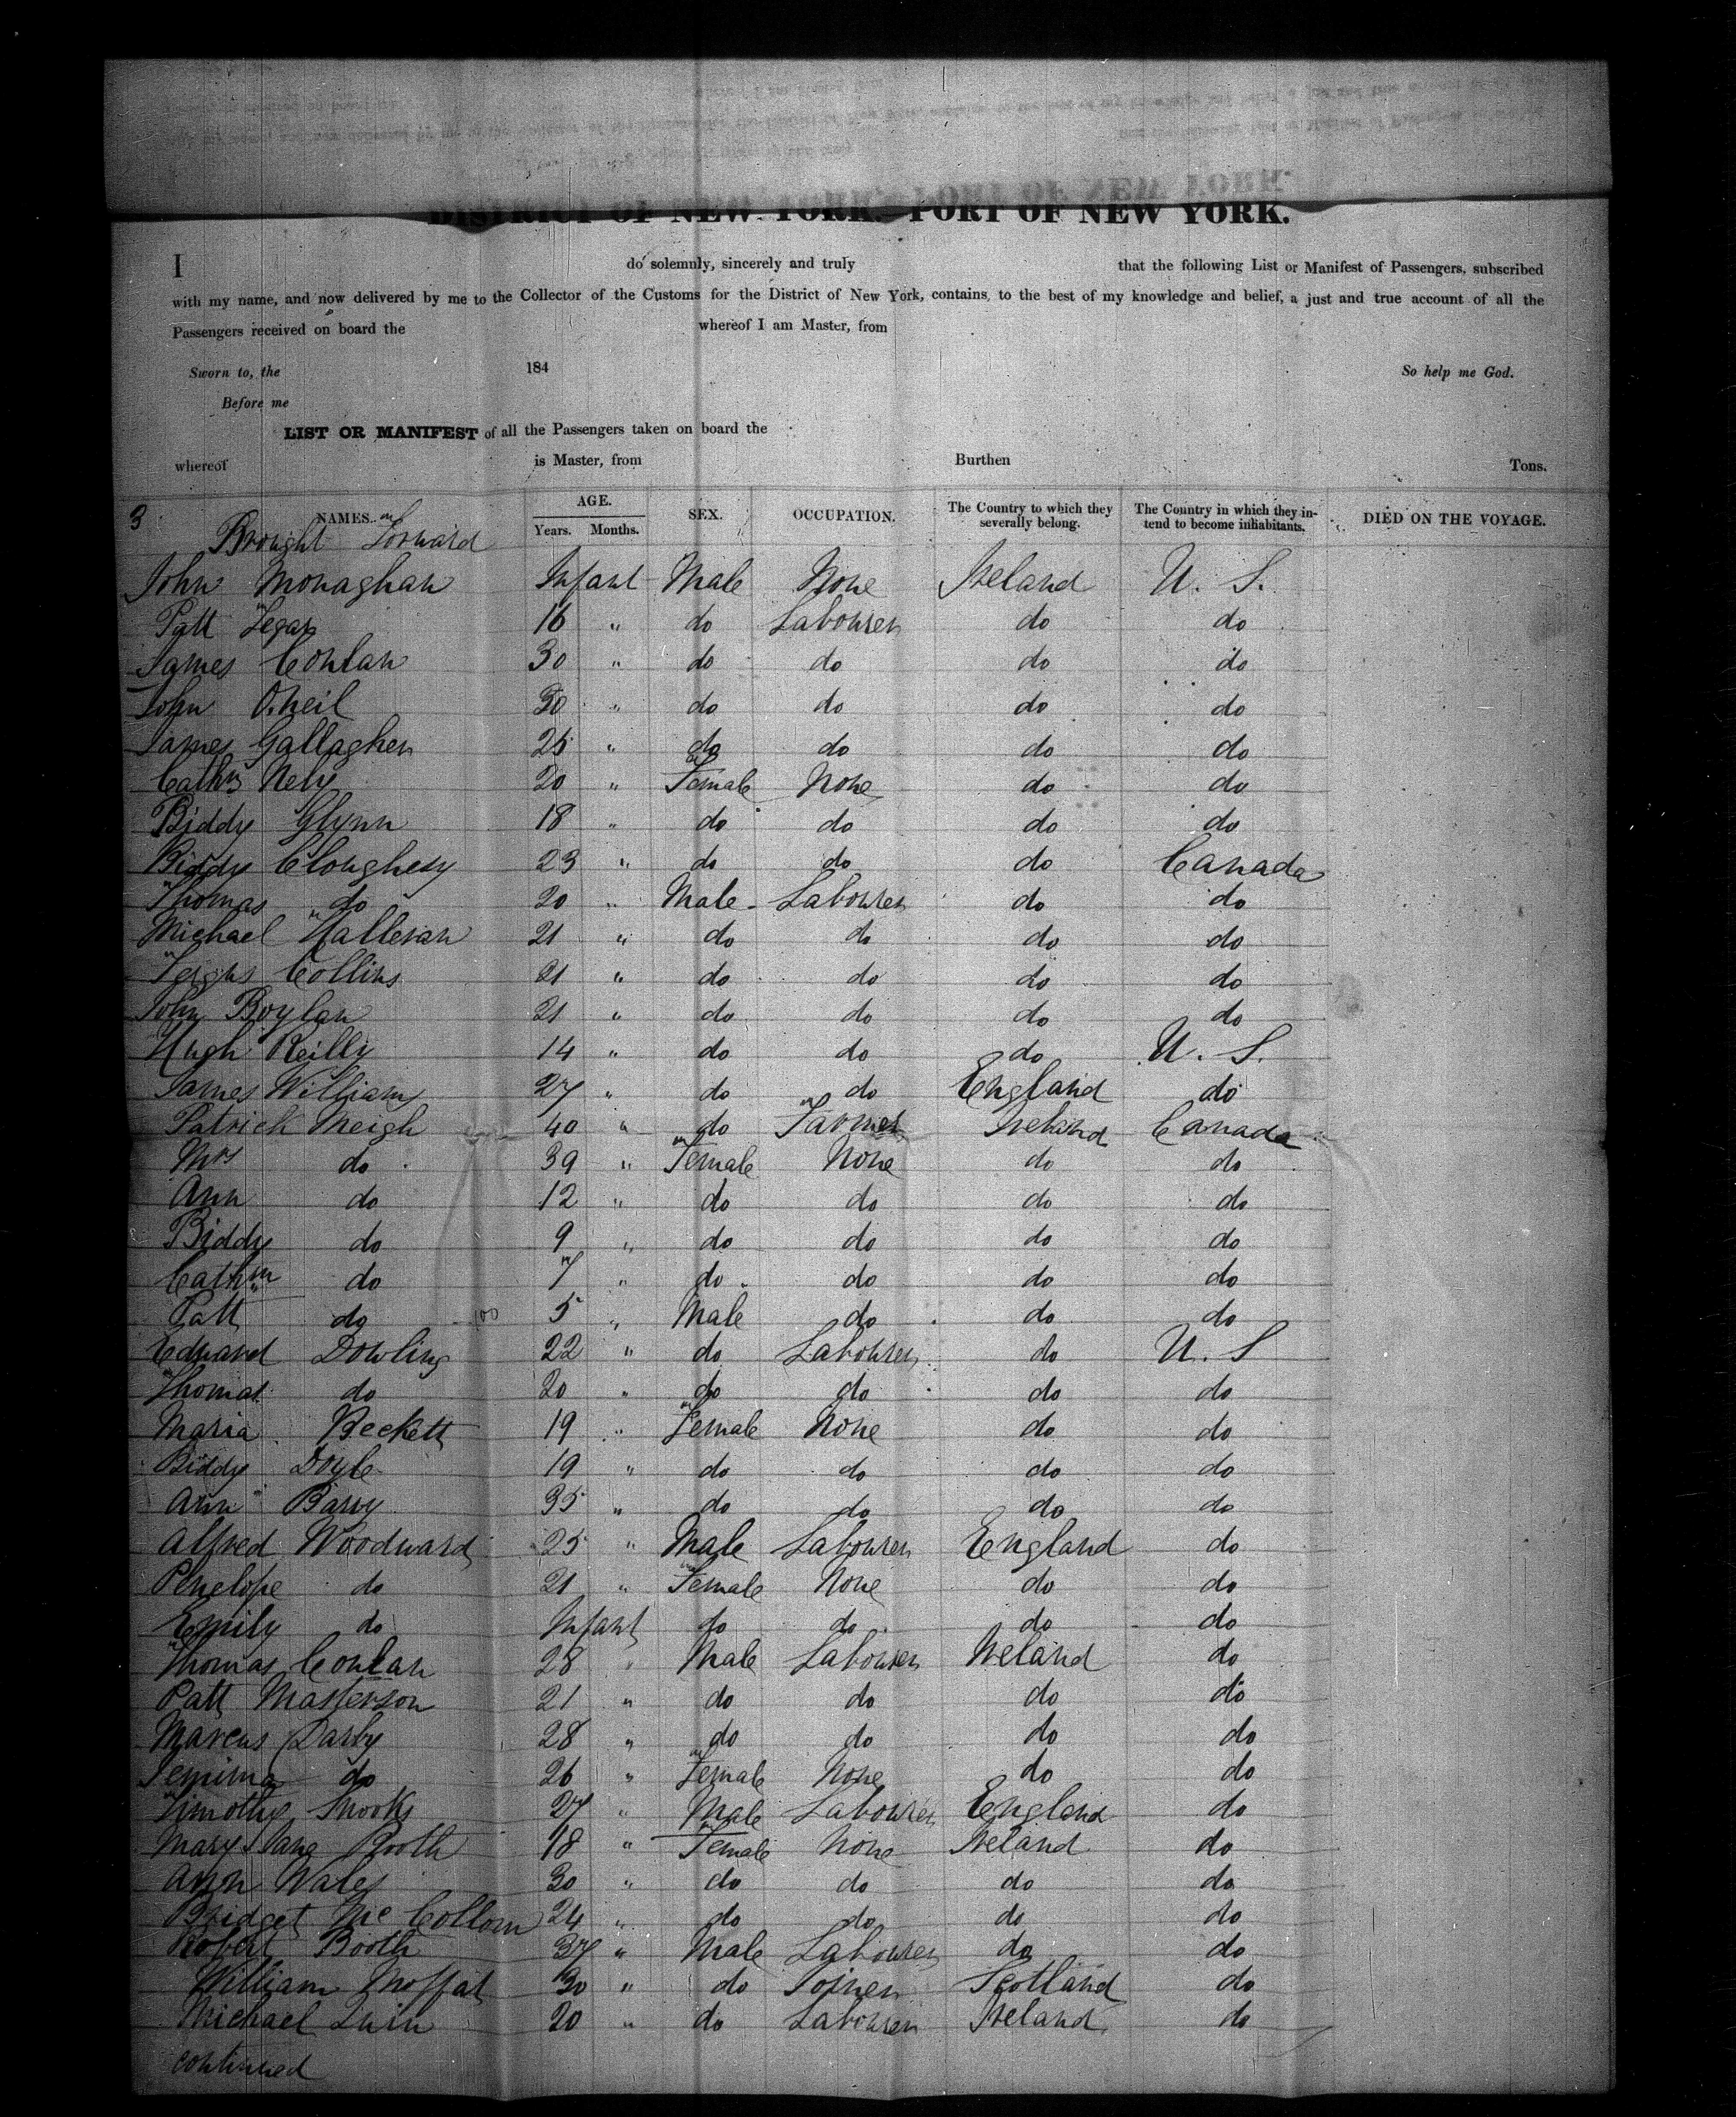 DISTRICT OF NEW YORK. PORT OF NEW YORK.
I do solemnly, sincerely and truly that the following List or Manifest of Passengers, subscribed
with my name, and now delivered by me to the Collector of the Customs for the District of New York, contains, to the best of my knowledge and belief, a just and true account of all the
Passengers received on board the whereof I am Master, from
Sworn to, the 184 So help me God.
Before me
LIST OR MANIFEST of all the Passengers taken on board the
whereof is Master, from Burthen Tons.
3 NAMES. AGE. Years. Months. SEX. OCCUPATION. The Country to which they severally belong. The Country in which they intend to become inhabitants. DIED ON THE VOYAGE.
Brought Forward
John Monaghan Infant Male None Ireland U. S.
Patt Fegan 16 " do Labourer do do
James Conlan 30 " do do do do
John O.Neil 30 " do do do do
James Gallagher 25 " do do do do
Nely 20 " Female None do do
Biddy Glynn 18 " do do do do
Biddy Cloughesy 23 " do do do Canada
Thomas do 20 " Male Labourer do do
Michael Halleran 21 " do do do do
Collins 21 " do do do do
John Boylan 21 " do do do do
Hugh Reilly 14 " do do do U. S.
James Williams 27 " do do England do
Patrick Meigh 40 " do Farmer Ireland Canada
Mrs do 39 " Female None do do
Ann do 12 " do do do do
Biddy do 9 " do do do do
Cathn do 7 " do do do do
Patt do 100 5 " Male do do do
Edward Dowling 22 " do Labourer do U. S
Thomas do 20 " do do do do
Maria Beckett 19 " Female None do do
Biddy Doyle 19 " do do do do
Ann Barry 35 " do do do do
Alfred Woodward 25 " Male Labourer England do
Penelope do 21 " Female None do do
Emily do Infant do do do do
Thomas Conlan 28 " Male Labourer Ireland do
Patt Masterson 21 " do do do do
Marcus Darby 28 " do do do do
Jemima do 26 " Female None do do
Timothy Snooks 27 " Male Labourer England do
Mary Jane Booth 18 " Female None Ireland do
Ann Wales 30 " do do do do
Bridget Mc Collom 24 " do do do do
Robert Booth 37 " Male Labourer do do
William Moffat 30 " do Joiner Scotland do
Michael Quin 20 " do Labourer Ireland do
continued